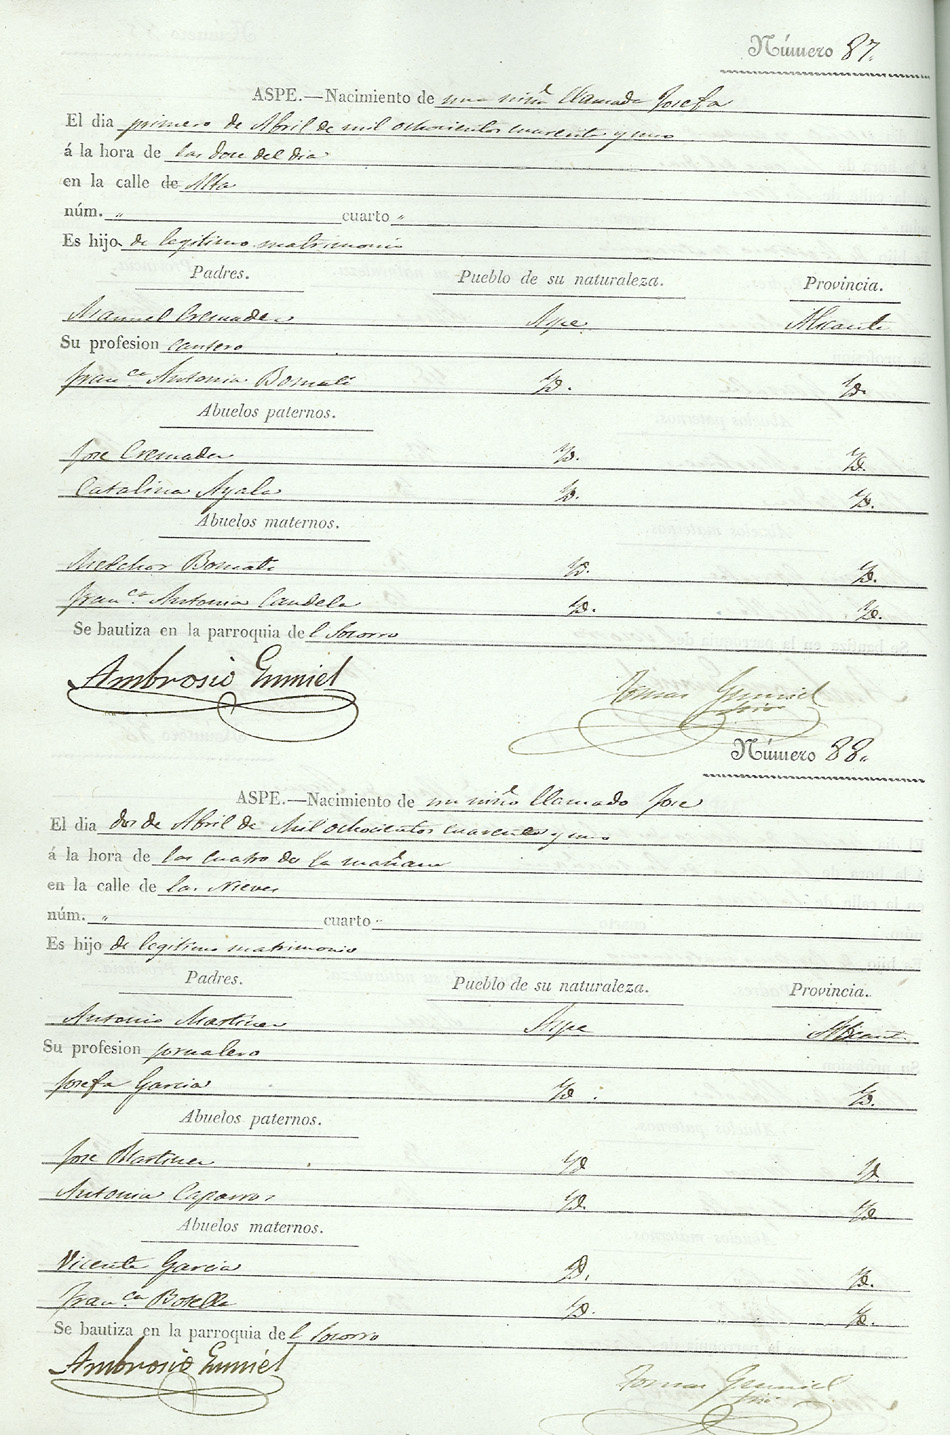 Número 87.
ASPE.—Nacimiento de una niña llamada Josefa
El dia primero de Abril de mil ochocientos cuarenta y uno
á la hora de las doce del dia
en la calle de Alta
núm. " cuarto "
Es hijo de legitimo matrimonio
Padres. Pueblo de su naturaleza. Provincia.
Manuel Cremades Aspe Alicante
Su profesion cantero
Franca Antonia Bomati Yd. Yd.
Abuelos paternos.
Jose Cremades Yd. Yd.
Catalina Ayala Yd. Yd.
Abuelos maternos.
Melchor Bomati Yd. Yd.
Franca Antonia Candela Yd. Yd.
Se bautiza en la parroquia del Socorro
Ambrosio Gumiel Tomas Gumiel
Número 88.
ASPE.—Nacimiento de un niño llamado Jose
El dia dos de Abril de Mil ochocientos cuarenta y uno
á la hora de las cuatro de la mañana
en la calle de las Nieves
núm. " cuarto "
Es hijo de legitimo matrimonio
Padres. Pueblo de su naturaleza. Provincia.
Antonio Martinez Aspe Alicante
Su profesion jornalero
Josefa Garcia Yd. Yd.
Abuelos paternos.
Jose Martinez Yd Yd
Antonia Caparros Yd. Yd.
Abuelos maternos.
Vicente Garcia Yd. Yd.
Franca Botella Yd. Yd.
Se bautiza en la parroquia del Socorro
Ambrosio Gumiel Tomas Gumiel